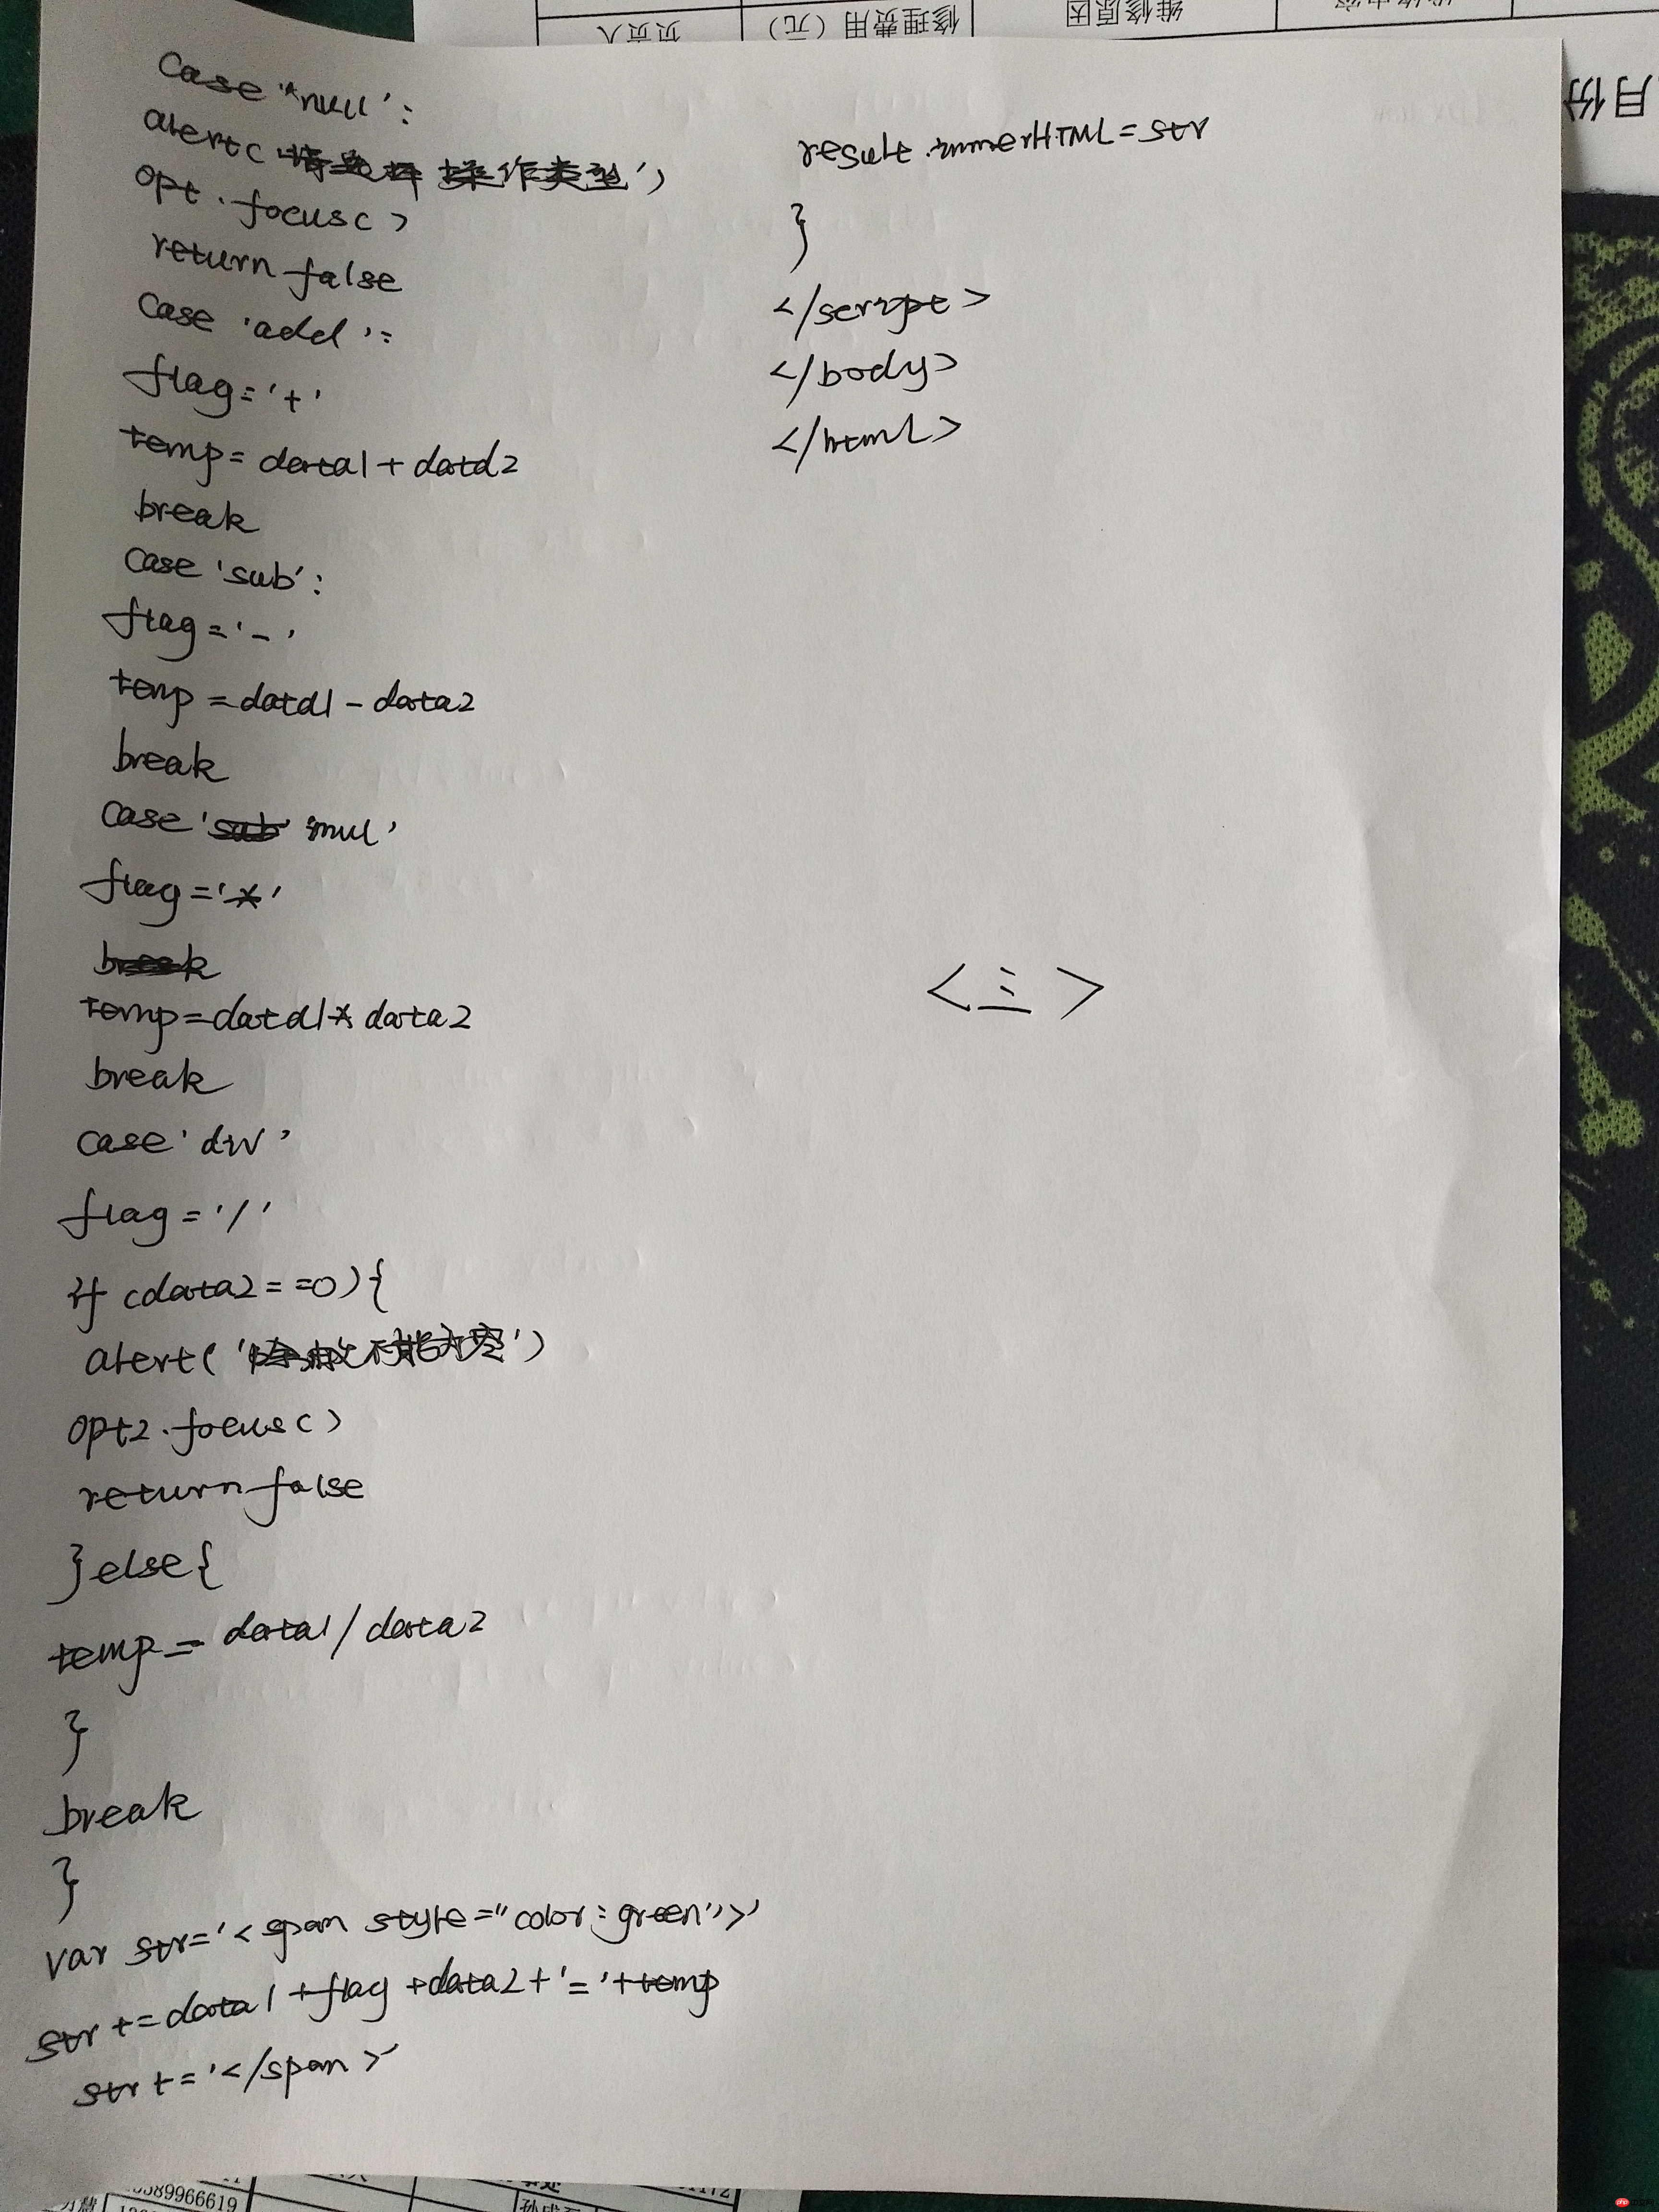 负责人
修理费用（元）
维修原因
月份
case 'null':
alert('请选择操作类型')
opt.focus()
return false
case 'add':
flag='+'
temp=data1+data2
break
case 'sub':
flag='-'
temp=data1-data2
break
case 'sub' 'mul'
flag='*'
break
temp=data1*data2
break
case 'div'
flag='/'
if (data2==0){
alert('除数不能为零')
opt2.focus()
return false
}else{
temp=data1/data2
}
break
}
var str='<span style="color:green">'
str+=data1+flag+data2+'='+temp
str+='</span>'
result.innerHTML=str
}
</script>
</body>
</html>
<三>